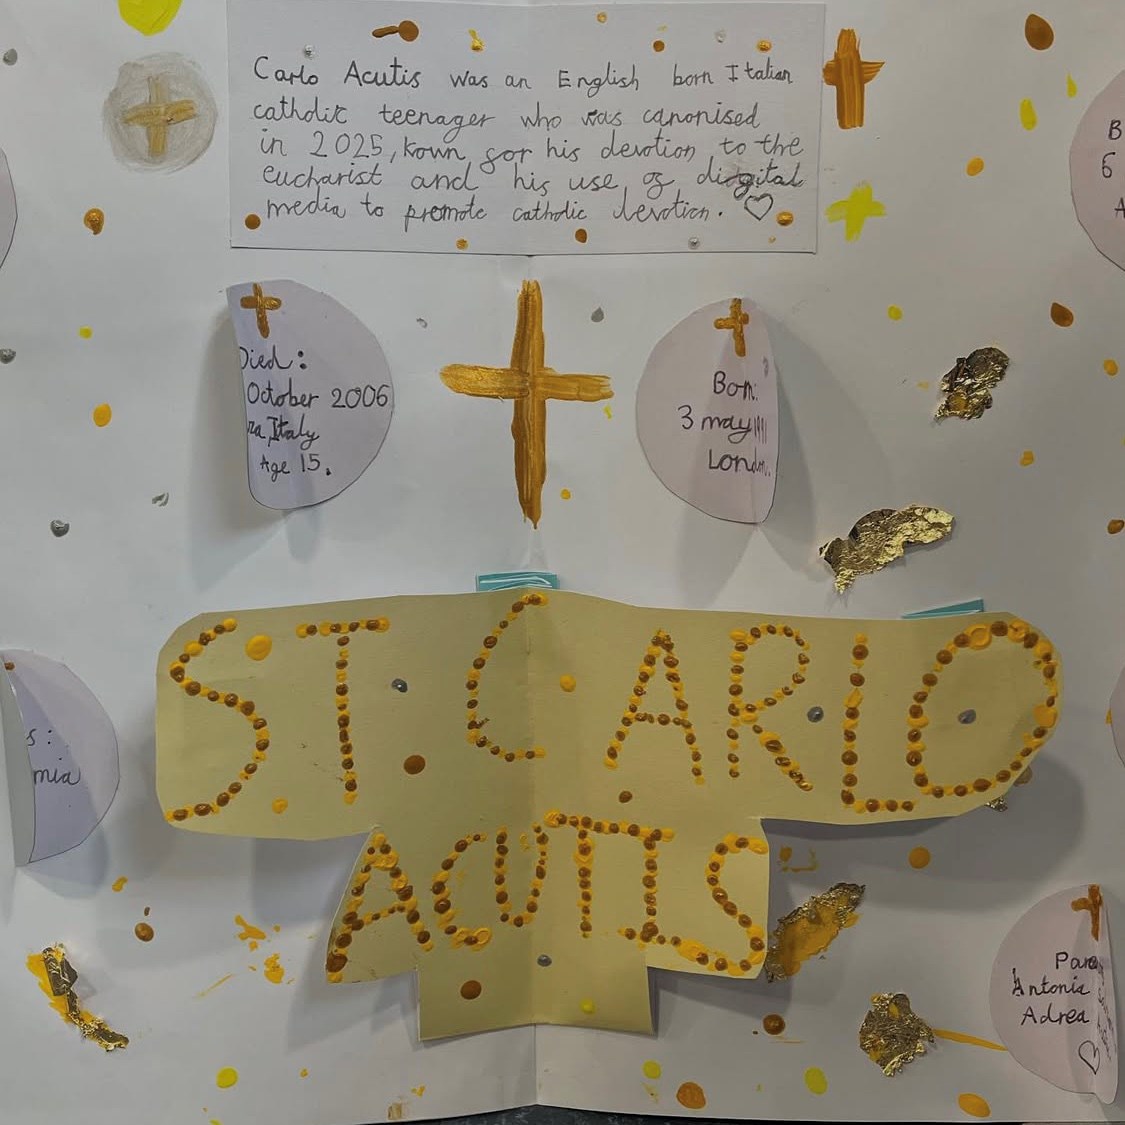 Carlo Acutis was an English born Italian
catholic teenager who was canonised
in 2025, kown for his devotion to the
eucharist and his use of digital
media to promote catholic devotion.
B
6
A
Died:
October 2006
za, Italy
Age 15.
Born:
3 may 1991
London.
ST. CARLO
ACUTIS
s:
mia
Pare
Antonia
Adrea